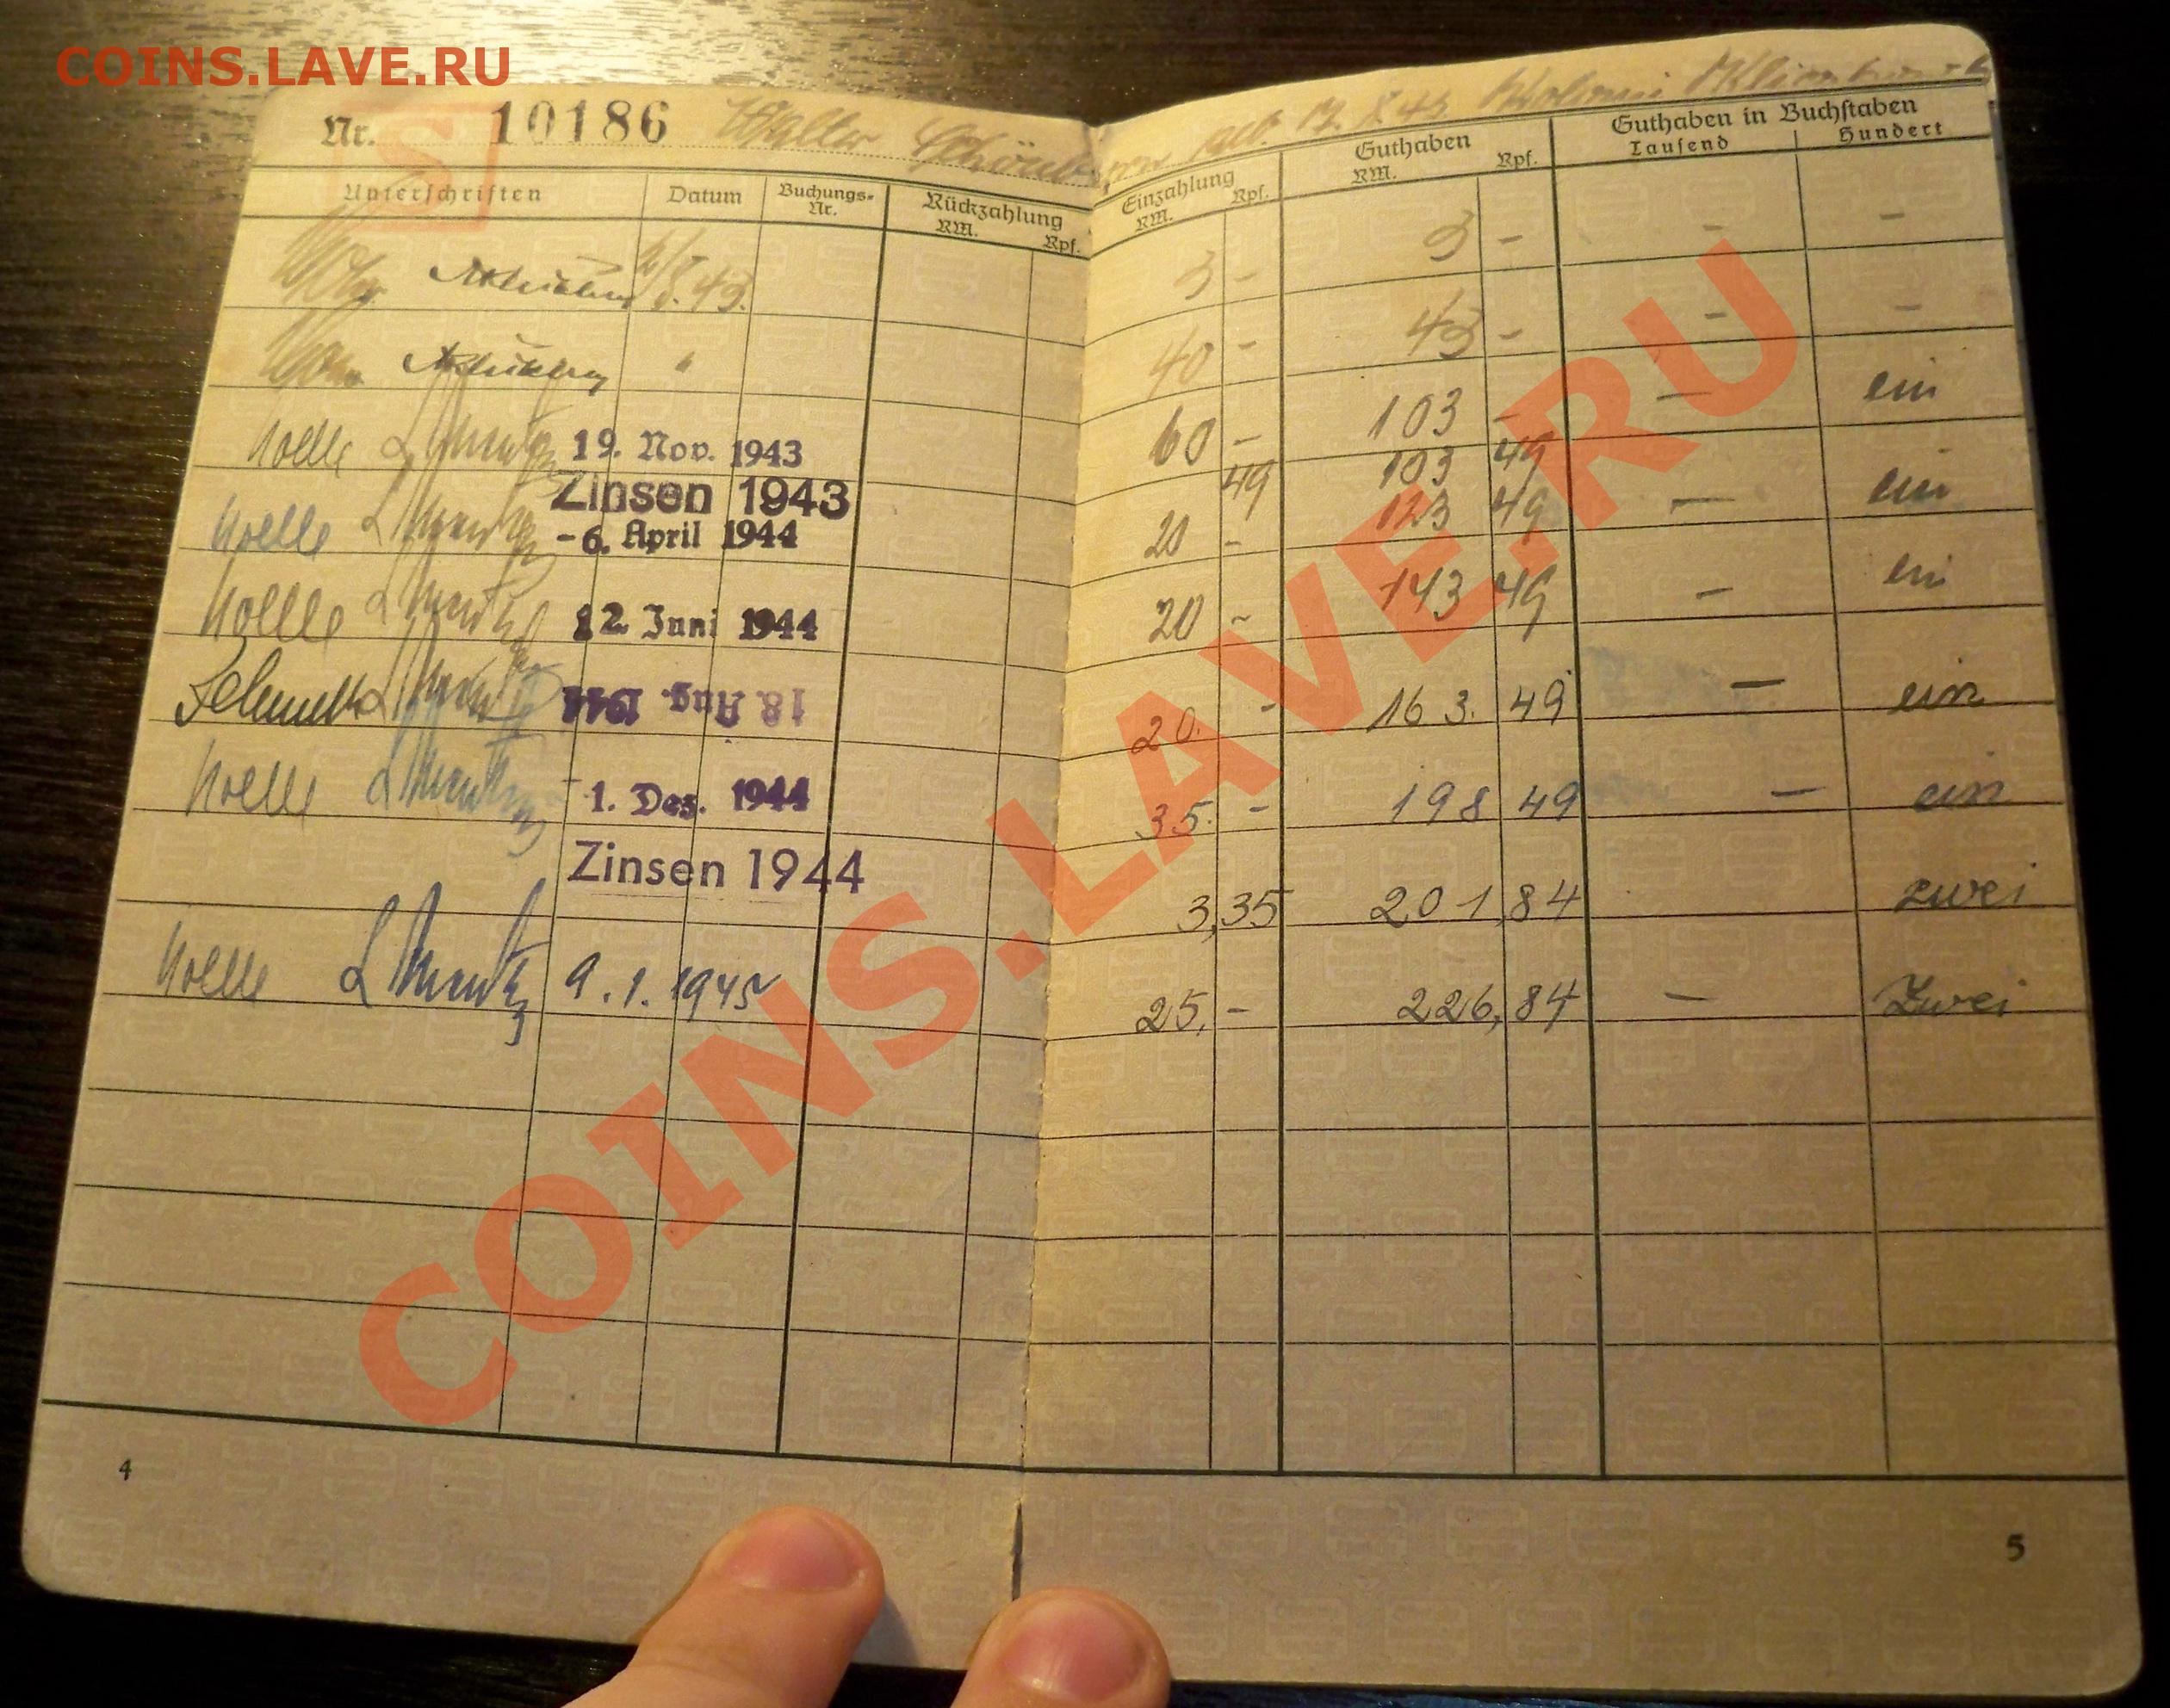 COINS.LAVE.RU
Nr. 10186 Walter geb.
Unterschriften Datum Buchungs-Nr. Rückzahlung RM. Rpf. Einzahlung RM. Rpf. Guthaben RM. Rpf. Guthaben in Buchstaben Tausend Hundert
43. 3 - 3 - - -
" 40 - 43 - - -
Noelle 19. Nov. 1943 60 - 103 - - ein
Zinsen 1943 49 103 49
Noelle -6. April 1944 20 - 123 49 - ein
Noelle 12. Juni 1944 20 - 143 49 - ein
18. Aug. 1944 20. - 163. 49 - ein
Noelle -1. Dez. 1944 35. - 198 49 - ein
Zinsen 1944 3,35 201,84 zwei
Noelle 9.1.1945 25,- 226,84 - Zwei
COINS.LAVE.RU
4
5